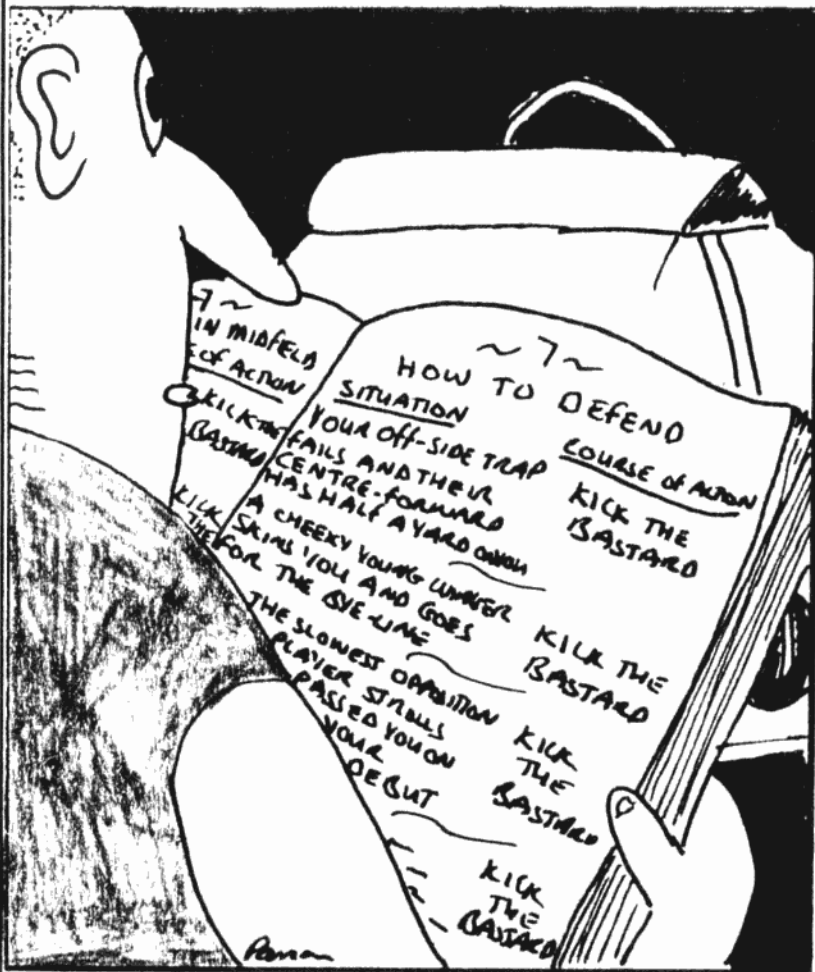 ~7~
IN MIDFIELD
OF ACTION
KICK THE
BASTARD
KICK
THE
~7~
HOW TO DEFEND
SITUATION
YOUR OFF-SIDE TRAP
FAILS AND THEIR
CENTRE-FORWARD
HAS HALF A YARD ON YOU
COURSE OF ACTION
KICK THE
BASTARD
A CHEEKY YOUNG WINGER
SKINS YOU AND GOES
FOR THE BYE-LINE
KICK THE
BASTARD
THE SLOWEST OPPOSITION
PLAYER STROLLS
PASSED YOU ON
YOUR
DEBUT
KICK
THE
BASTARD
KICK
THE
BASTARD